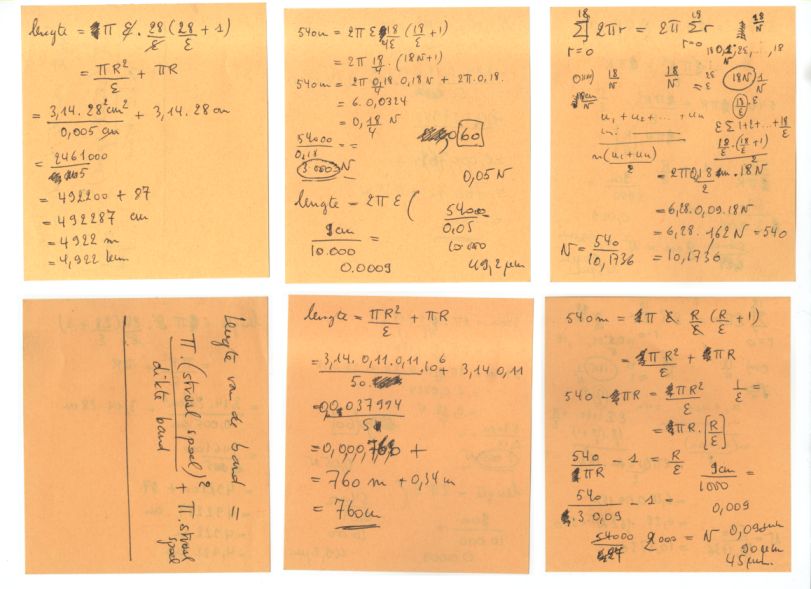 lengte = π ε . 28/ε (28/ε + 1)
= πR²/ε + πR
= 3,14 . 28² cm² / 0,005 cm + 3,14 . 28 cm
= 2461000
= 492200 + 87
= 492287 cm
= 4922 m
= 4,922 km
540m = 2π ε 18/4ε (18/ε + 1)
= 2π 18/4 . (18N+1)
540m = 2π 0,18/4 . 0,18N + 2π . 0,18 .
= 6 . 0,0324
= 0,18/4 N
54000/0,18 = =
60
3000 N
0,05 N
lengte = 2π ε (
9cm/10.000 =
54000/0,05
10.000
0.0009
49,2 μm
18 Σ r=0 2πr = 2π 18 Σ r=0 r
18/N
0, 1, 2ε, ..., 18
18/N
18/N = ε
18N
1/N
18/ε . ε
u₁ + u₂ + ... + uₙ
ε Σ 1+2+...+18/ε
n(u₁+uₙ)/2
18/ε . (18/ε + 1)
= 2π 0,18/2 m . 18N
= 6,28 . 0,09 . 18N
= 6,28 . 1,62 N = 540
N = 540/10,1736
= 10,1736
lengte van de band =
π . (straal spoel)² / dikte band + π . straal spoel
lengte = πR²/ε + πR
= 3,14 . 0,11 . 0,11 / 50 . 10⁶ + 3,14 . 0,11
= 0,037994
= 0,000,760 +
= 760 m + 0,34 m
= 760m
540m = π ε R/ε (R/ε + 1)
= πR²/ε + πR
540 - πR = πR²/ε
1/ε =
= πR . [R/ε]
540/πR - 1 = R/ε
9cm/1000 =
540/3.0,09 - 1 =
0,009
54000/27
2000 = N
0,09 μm
90 μm
45 μm.